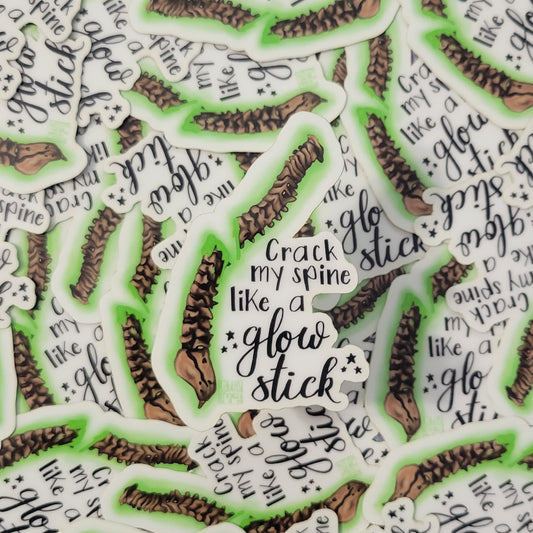 Crack
my spine
like a
glow
stick